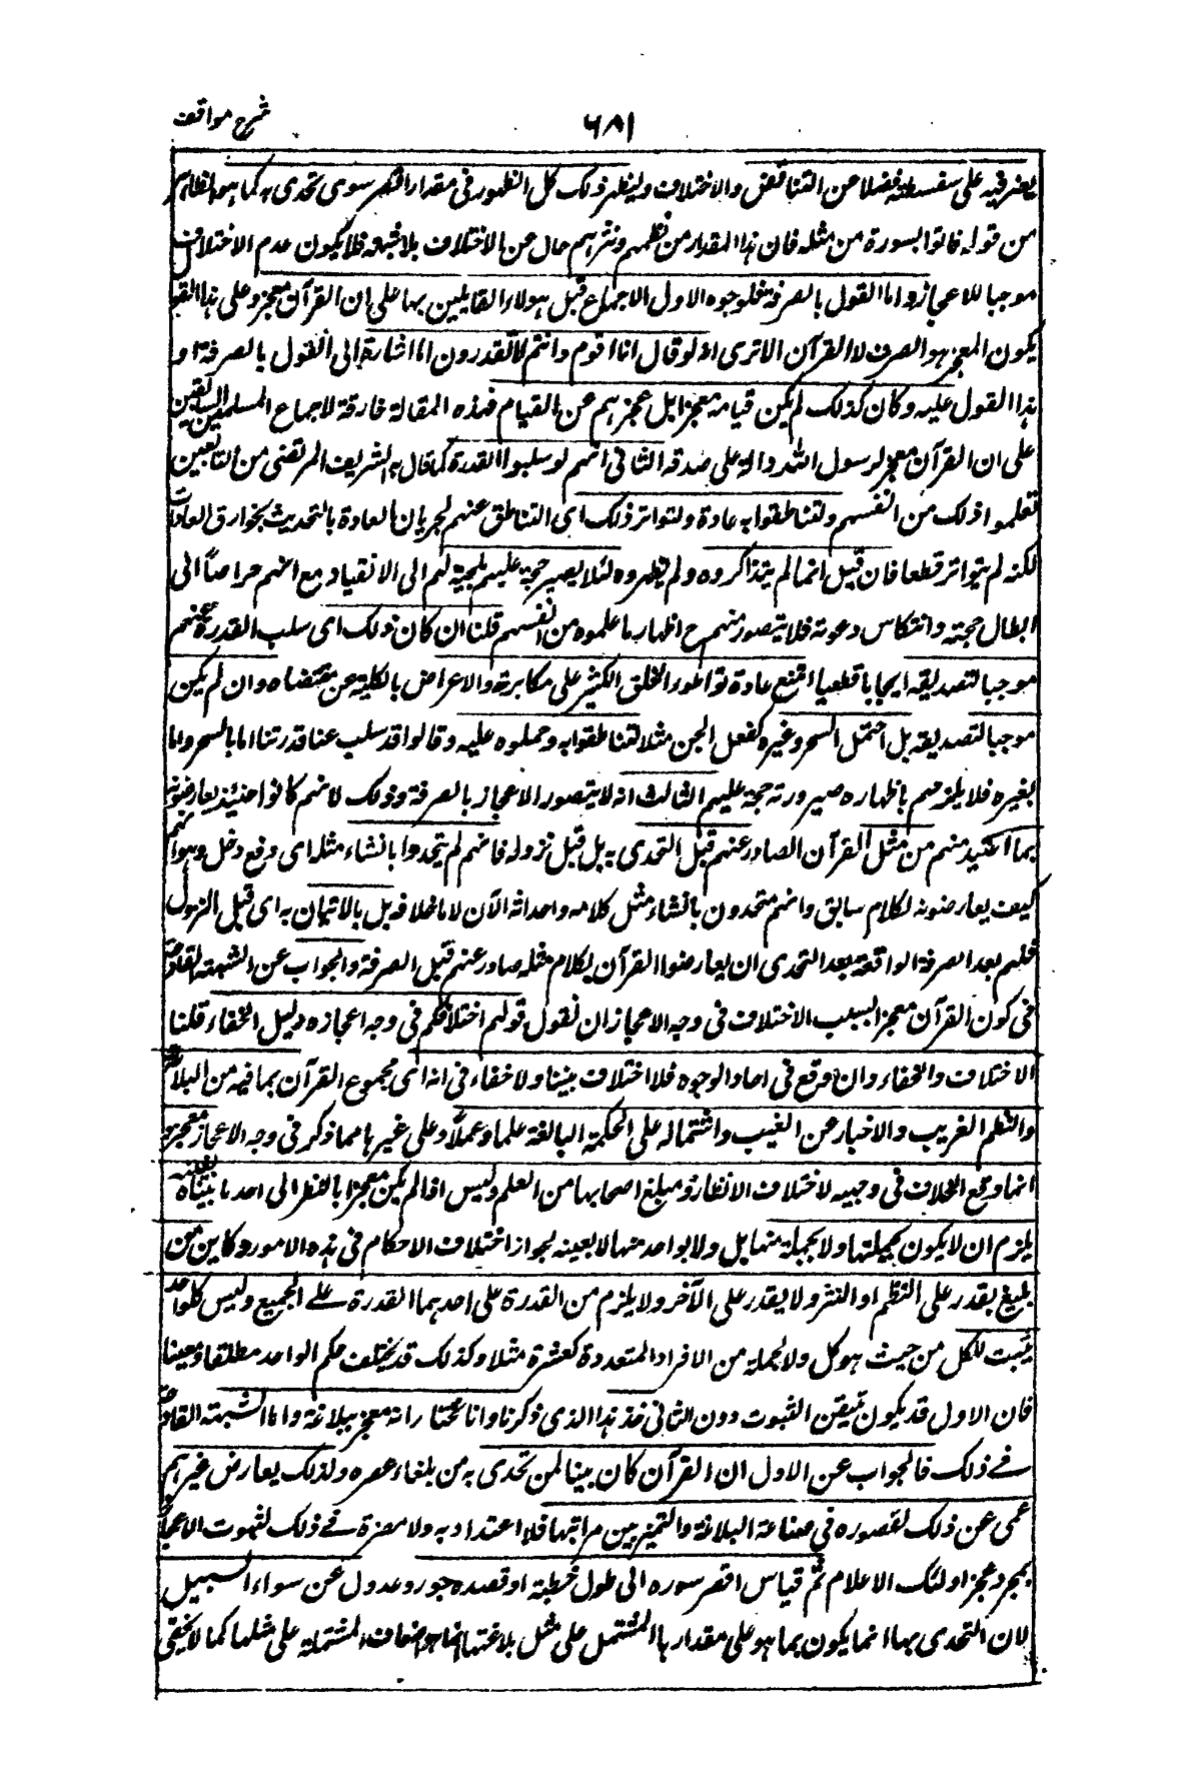 شرح مواقف
٦٨١
يعثر فيه على سفسطة فضلا عن التناقض والاختلاف وليظهر ذلك كل الظهور فى مقدار اقصر سورة تحدى به كما هو الظاهر
من قوله فاتوا بسورة من مثله فان هذا المقدار من نظمهم ونثرهم خال عن الاختلاف بلا شبهة فلا يكون عدم الاختلاف
موجبا للاعجاز واما القول بالصرفة فلوجوه الاول الاجماع قبل هولاء القايلين بها على ان القرآن معجز وعلى هذا القول
يكون المعجز هو الصرف لا القرآن الا ترى انه لو قال انا اقوم وانتم لا تقدرون اما اشارة الى القول بالصرفة او
هذا القول عليه وكان كذلك لم يكن قيامه معجزا بل عجزهم عن القيام فهذه المقالة خارقة لاجماع المسلمين السابقين
على ان القرآن معجز لرسول الله دالة على صدقه الثانى انهم لو سلبوا القدرة كما قال به الشريف المرتضى من
لعلموا ذلك من انفسهم ولتناطقوا به عادة ولتواتر ذلك اى التناطق عنهم لجريان العادة بالتحديث بخوارق العادات
لكنه لم يتواتر قطعا فان قيل انما لم يتذاكروه ولم يظهروه لئلا يصير حجة عليهم ملجية لهم الى الانقياد مع انهم حراصا الى
ابطال حجته وانتكاس دعوته فلا يتصور منهم ح اظهار ما علموه من انفسهم قلنا ان كان ذلك اى سلب القدرة عنهم
موجبا لتصديقه ايجابا قطعيا امتنع عادة تواطؤ الخلق الكثير على مكابرته والاعراض بالكلية عن مقتضاه وان لم يكن
موجبا لتصديقه بل احتمل السحر وغيره كفعل الجن مثلا لتناطقوا به وحملوه عليه وقالوا قد سلب عنا قدرتنا اما بالسحر واما
بغيره فلا يلزمهم باظهاره صيرورته حجة عليهم الثالث انه لا يتصور الاعجاز بالصرفة وذلك لانهم كانوا حنيئذ يعارضونه
بما اعتيد منهم من مثل القرآن الصادر عنهم قبل التحدى به بل قبل نزوله فانهم لم يتحدوا بانشاء مثله اى دفع دخل وهو انهم
كيف يعارضونه لكلام سابق وانهم متحدون بانشاء مثل كلامه واحداثه الآن لا ما خلافه بل بالاتيان به اى قبل النزول
فلهم بعد الصرفة الواقعة بعد التحدى ان يعارضوا القرآن بكلام مثله صادر عنهم قبل الصرفة والجواب عن الشبهة القادحة
فى كون القرآن معجزا بسبب الاختلاف فى وجه الاعجاز ان نقول قولهم اختلافكم فى وجه اعجازه دليل الخفاء قلنا
الاختلاف والخفاء وان وقع فى احاد الوجوه فلا اختلاف بيننا ولا خفاء فى انه اى مجموع القرآن بما فيه من البلاغة
والنظم الغريب والاخبار عن الغيب واشتماله على الحكمة البالغة علما وعملا وعلى غيرها مما ذكر فى وجه الاعجاز معجز و
انما وقع الخلاف فى وجهه لاختلاف الانظار ومبلغ اصحابها من العلم وليس اذا لم يكن معجزا بالنظر الى احد ما بيناه بعينه
يلزم ان لا يكون بجملتها ولا بجملة منها بل ولا بواحد منها لا بعينه لجواز اختلاف الاحكام فى هذه الامور وكاين من
بليغ يقدر على النظم او النثر ولا يقدر على الآخر ولا يلزم من القدرة على احدهما القدرة على الجميع وليس كلواحد
يثبت للكل من حيث هو كل ولا لجملة من الافراد المتعددة كعشرة مثلا وكذلك قد يختلف حكم الواحد مطلقا ومعينا
فان الاول قد يكون متيقن الثبوت دون الثانى خذ هذا الذى ذكرنا وانا نختار انه معجز ببلاغة واما الشبهة القادحة
فى ذلك فالجواب عن الاول ان القرآن كان بينا لمن تحدى به من بلغاء عصره ولذلك يعارض غيرهم
عمى عن ذلك لقصوره فى صناعة البلاغة والتمييز بين مراتبها فلا اعتداد به ولا مضرة فى ذلك لثبوت الاعجاز
بمجرد عجز اولئك الاعلام ثم قياس اقصر سوره الى طول خطبة او قصده جور وعدول عن سواء السبيل
لان التحدى بها انما يكون بما هو على مقدارها المشتمل على مثل بلاغتها اضعاف المشتملة على مثلها كما لا يخفى